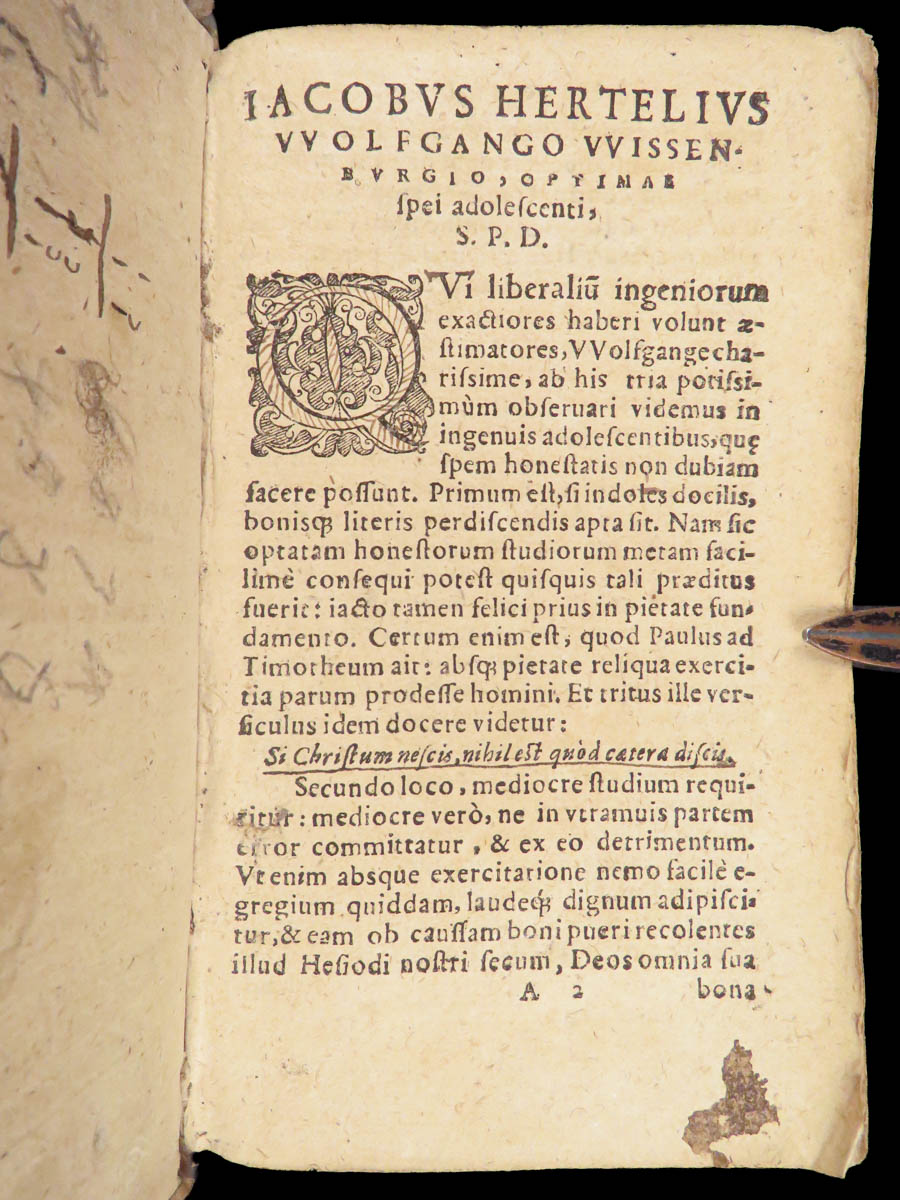 IACOBVS HERTELIVS
VVOLFGANGO VVISSEN-
BVRGIO, OPTIMAE
ſpei adoleſcenti,
S. P. D.
QVi liberaliũ ingeniorum
exactiores haberi volunt æ-
ſtimatores, VVolfgange cha-
riſſime, ab his tria potiſſi-
mùm obſeruari videmus in
ingenuis adoleſcentibus, quę
ſpem honeſtatis non dubiam
facere poſſunt. Primum eſt, ſi indoles docilis,
bonisq; literis perdiſcendis apta ſit. Nam ſic
optatam honeſtorum ſtudiorum metam faci-
limè conſequi poteſt quiſquis tali præditus
fuerit: iacto tamen felici prius in pietate fun-
damento. Certum enim eſt, quod Paulus ad
Timotheum ait: absq; pietate reliqua exerci-
tia parum prodeſſe homini. Et tritus ille ver-
ſiculus idem docere videtur:
Si Chriſtum neſcis, nihil est quòd cætera diſcis.
Secundo loco, mediocre ſtudium requi-
ritur: mediocre verò, ne in vtramuis partem
error committatur, & ex eo detrimentum.
Vt enim absque exercitatione nemo facilè e-
gregium quiddam, laudeq́; dignum adipiſci-
tur, & eam ob cauſſam boni pueri recolentes
illud Heſiodi noſtri ſecum, Deos omnia ſua
A 2 bona